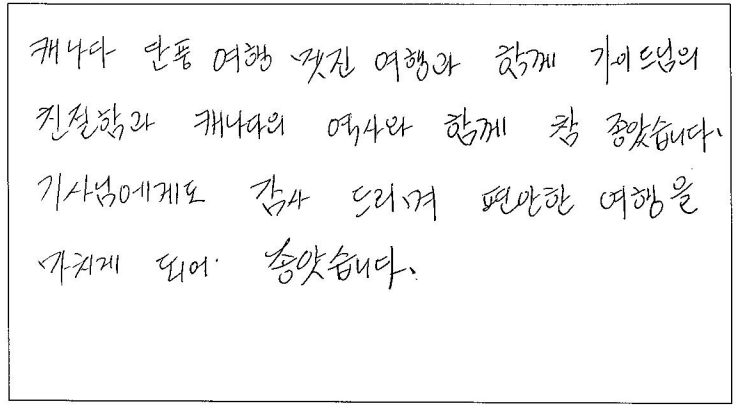 캐나다 단풍 여행 멋진 여행과 함께 가이드님의
친절함과 캐나다의 역사와 함께 참 좋았습니다.
기사님에게도 감사 드리며 편안한 여행을
마치게 되어 좋았습니다.